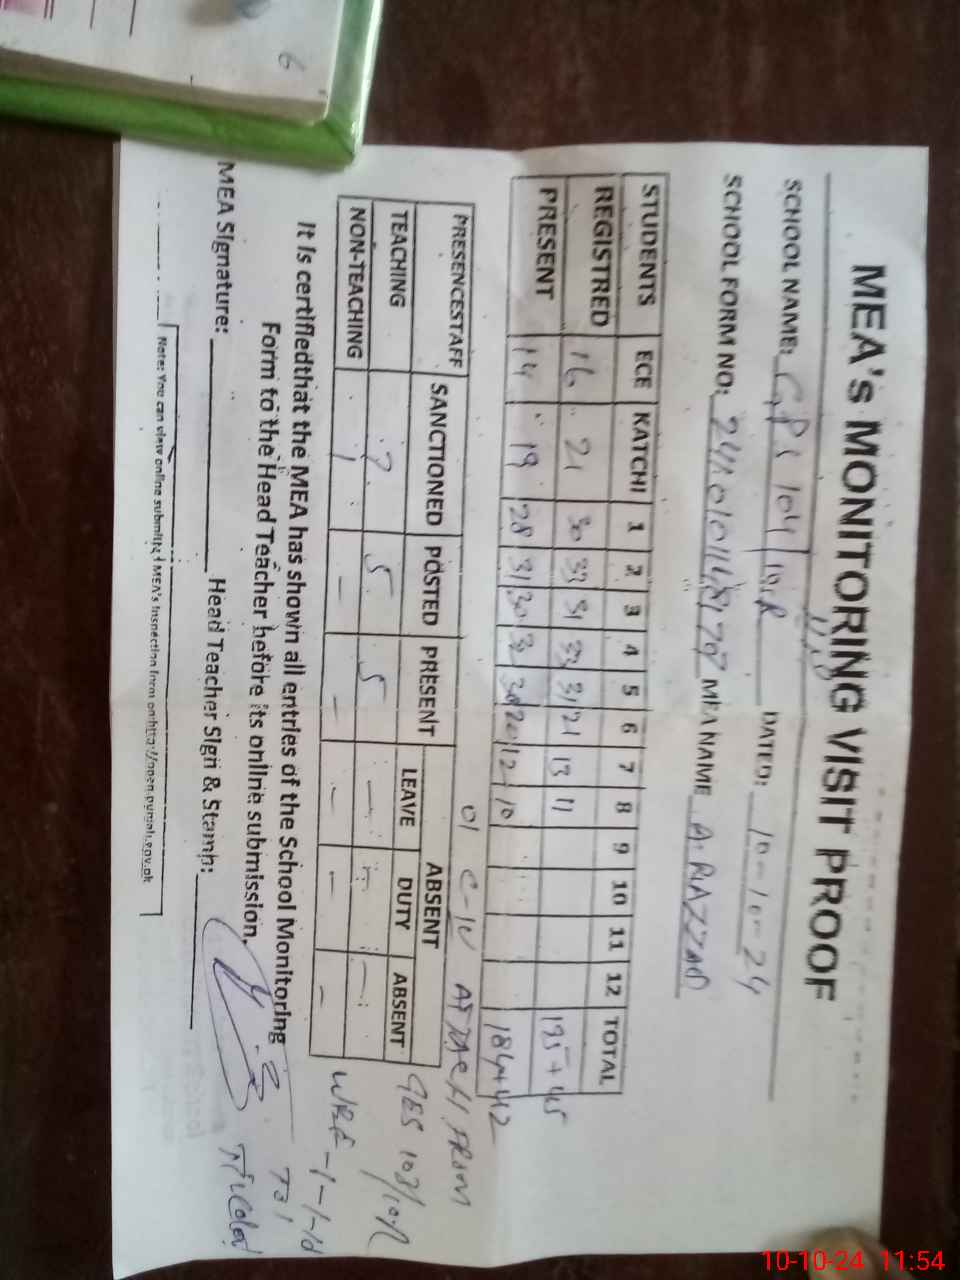 6
MEA's MONITORING VISIT PROOF
SCHOOL NAME: GPS 104/10.R DATED: 10-10-24
SCHOOL FORM NO: MEA NAME A.RAZZAQ
STUDENTS ECE KATCHI 1 2 3 4 5 6 7 8 9 10 11 12 TOTAL
REGISTRED 16 21 30 33 31 33 31 21 13 11 195+45
PRESENT 14 19 28 31 30 32 30 20 12 10 184+42
01 C-IV ATTACH FROM
PRESENCESTAFF SANCTIONED POSTED PRESENT ABSENT
LEAVE DUTY ABSENT
GES 103/10R
TEACHING 7 5 5 - - -
NON-TEACHING 1 - - - - -
It is certifiedthat the MEA has shown all entries of the School Monitoring
Form to the Head Teacher before its online submission.
MEA Signature: Head Teacher Sign & Stamp:
Note: You can view online submitted MEA's Inspection form on:http://open.pmiu.gov.pk
10-10-24 11:54